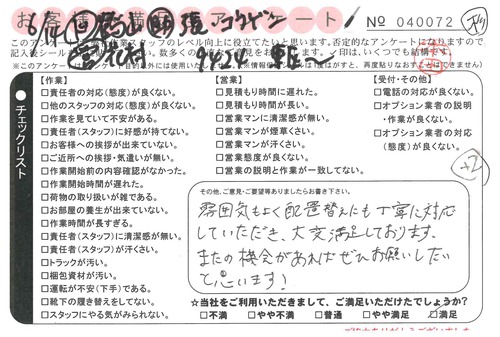 お客様
アンケート
№ 040072
このアンケートは
作業スタッフのレベル向上に役立てたいと思います。否定的なアンケートになりますので
記入後シール
数多くの
お願い致します。✓印は、いくつでも結構です。
※このアンケートは
目的以外には使用いたしません。
再度貼りなおすことはできません)
チェックリスト
【作業】
□責任者の対応(態度)が良くない。
□他のスタッフの対応(態度)が良くない。
□作業を見ていて不安がある。
□責任者(スタッフ)に好感が持てない。
□お客様への挨拶が出来ていない。
□ご近所への挨拶・気遣いが無い。
□作業開始前の内容確認がなかった。
□作業開始時間が遅れた。
□荷物の取り扱いが雑である。
□お部屋の養生が出来ていない。
□作業時間が長すぎる。
□責任者(スタッフ)に清潔感が無い。
□責任者(スタッフ)が汗くさい。
□トラックが汚い。
□梱包資材が汚い。
□運転が不安(下手)である。
□靴下の履き替えをしてない。
□スタッフにやる気がみられない。
【営業】
□見積もり時間に遅れた。
□見積もり時間が長い。
□営業マンに清潔感が無い。
□営業マンが煙草くさい。
□営業マンが汗くさい。
□営業態度が良くない。
□営業の説明と作業が一致してない。
【受付・その他】
□電話の対応が良くない。
□オプション業者の説明
・作業が良くない。
□オプション業者の対応
(態度)が良くない。
+2
その他、ご意見・ご要望等ありましたらお書き下さい。
雰囲気もよく配置替えにも丁寧に対応
していただき、大変満足しております。
またの機会があればぜひお願いしたい
と思います!
☆当社をご利用いただきまして、ご満足いただけたでしょうか?
□不満 □やや不満 □普通 □やや満足 ☑満足
ご協力ありがとうございました